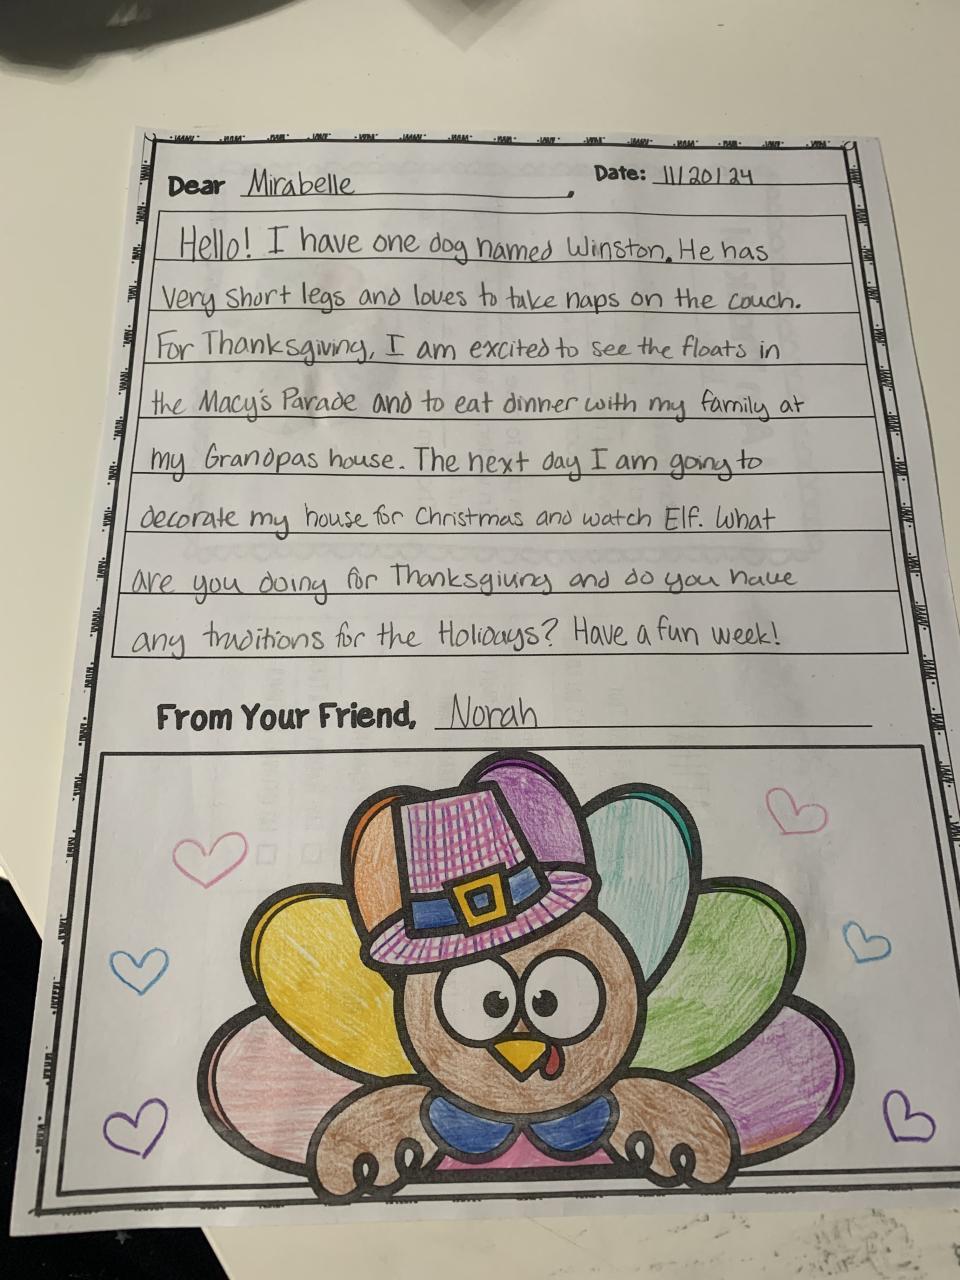 Dear Mirabelle, Date: 11/20/24
Hello! I have one dog named Winston. He has
very short legs and loves to take naps on the couch.
For Thanksgiving, I am excited to see the floats in
the Macy's Parade and to eat dinner with my family at
my Grandpas house. The next day I am going to
decorate my house for Christmas and watch Elf. What
are you doing for Thanksgiving and do you have
any traditions for the Holidays? Have a fun week!
From Your Friend, Norah